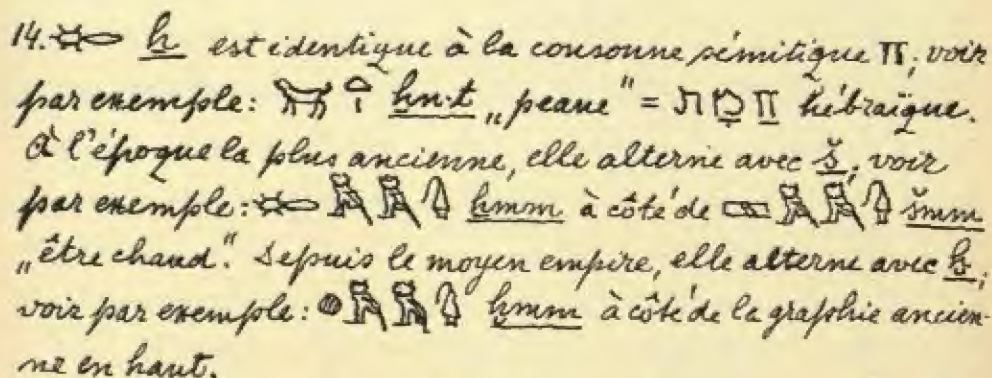 14. 𓄡 ẖ est identique à la consonne sémitique ח; voir
par exemple: ẖn·t „peaue" = חמת hébraïque.
À l'époque la plus ancienne, elle alterne avec š; voir
par exemple: 𓄡 ẖmm à côté de 𓈙 šmm
„être chaud". Depuis le moyen empire, elle alterne avec ḫ;
voir par exemple: 𓐍 ḫmm à côté de la graphie ancien-
ne en haut.